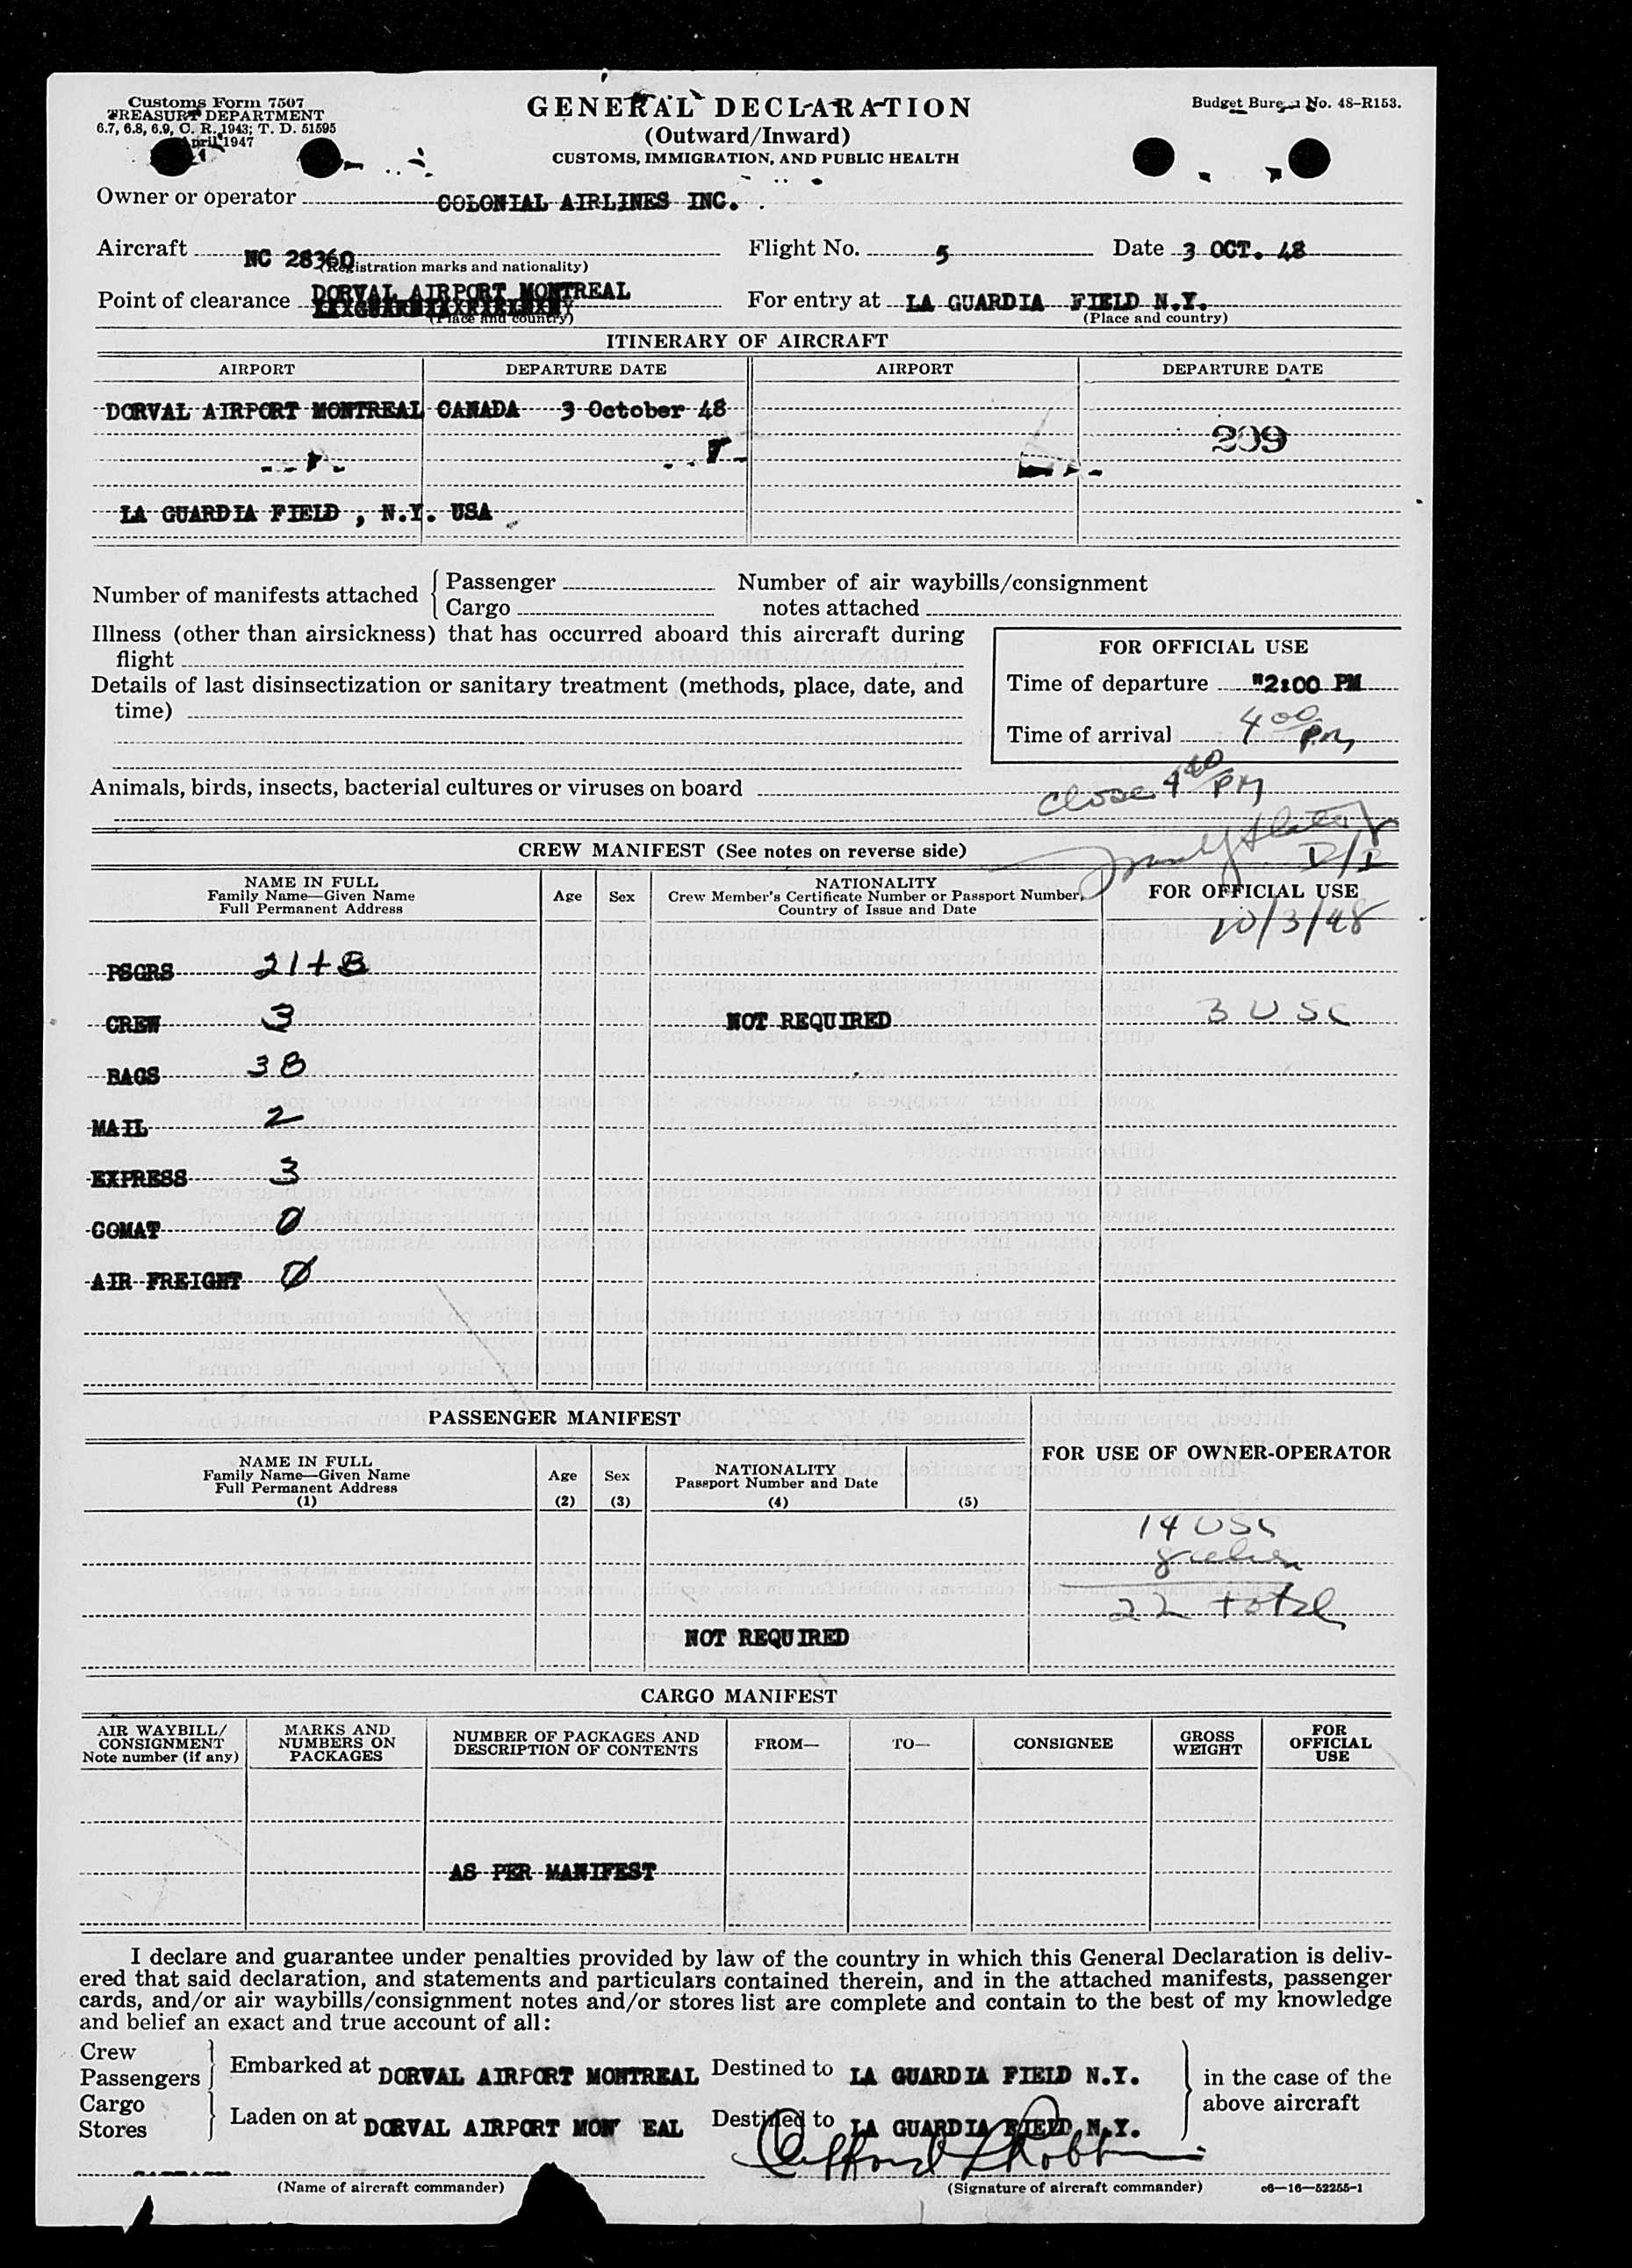 Customs Form 7507
TREASURY DEPARTMENT
6.7, 6.8, 6.9, C. R. 1943; T. D. 51595
April 1947
GENERAL DECLARATION
(Outward/Inward)
CUSTOMS, IMMIGRATION, AND PUBLIC HEALTH
Budget Bureau No. 48-R153.
Owner or operator COLONIAL AIRLINES INC.
Aircraft NC 28360 Flight No. 5 Date 3 OCT. 48
(Registration marks and nationality)
Point of clearance DORVAL AIRPORT MONTREAL For entry at LA GUARDIA FIELD N.Y.
(Place and country) (Place and country)
ITINERARY OF AIRCRAFT
AIRPORT DEPARTURE DATE AIRPORT DEPARTURE DATE
DORVAL AIRPORT MONTREAL CANADA 3 October 48
209
LA GUARDIA FIELD , N.Y. USA
Number of manifests attached { Passenger
Cargo
Number of air waybills/consignment
notes attached
Illness (other than airsickness) that has occurred aboard this aircraft during
flight
Details of last disinsectization or sanitary treatment (methods, place, date, and
time)
FOR OFFICIAL USE
Time of departure "2:00 PM
Time of arrival 4 00 PM
Animals, birds, insects, bacterial cultures or viruses on board
close 4 40 PM
D/I
CREW MANIFEST (See notes on reverse side)
NAME IN FULL
Family Name—Given Name
Full Permanent Address
Age
Sex
NATIONALITY
Crew Member's Certificate Number or Passport Number,
Country of Issue and Date
FOR OFFICIAL USE
10/3/48
PSGRS 21+B
CREW 3 NOT REQUIRED 3 USC
BAGS 38
MAIL 2
EXPRESS 3
COMAT 0
AIR FREIGHT 0
PASSENGER MANIFEST
FOR USE OF OWNER-OPERATOR
NAME IN FULL
Family Name—Given Name
Full Permanent Address
(1)
Age
(2)
Sex
(3)
NATIONALITY
Passport Number and Date
(4)
(5)
14 USC
8 alien
22 total
NOT REQUIRED
CARGO MANIFEST
AIR WAYBILL/
CONSIGNMENT
Note number (if any)
MARKS AND
NUMBERS ON
PACKAGES
NUMBER OF PACKAGES AND
DESCRIPTION OF CONTENTS
FROM—
TO—
CONSIGNEE
GROSS
WEIGHT
FOR
OFFICIAL
USE
AS PER MANIFEST
I declare and guarantee under penalties provided by law of the country in which this General Declaration is deliv-
ered that said declaration, and statements and particulars contained therein, and in the attached manifests, passenger
cards, and/or air waybills/consignment notes and/or stores list are complete and contain to the best of my knowledge
and belief an exact and true account of all:
Crew
Passengers } Embarked at DORVAL AIRPORT MONTREAL Destined to LA GUARDIA FIELD N.Y.
Cargo
Stores } Laden on at DORVAL AIRPORT MON EAL Destined to LA GUARDIA FIELD N.Y.
} in the case of the
above aircraft
(Name of aircraft commander) (Signature of aircraft commander) c6—16—52255-1